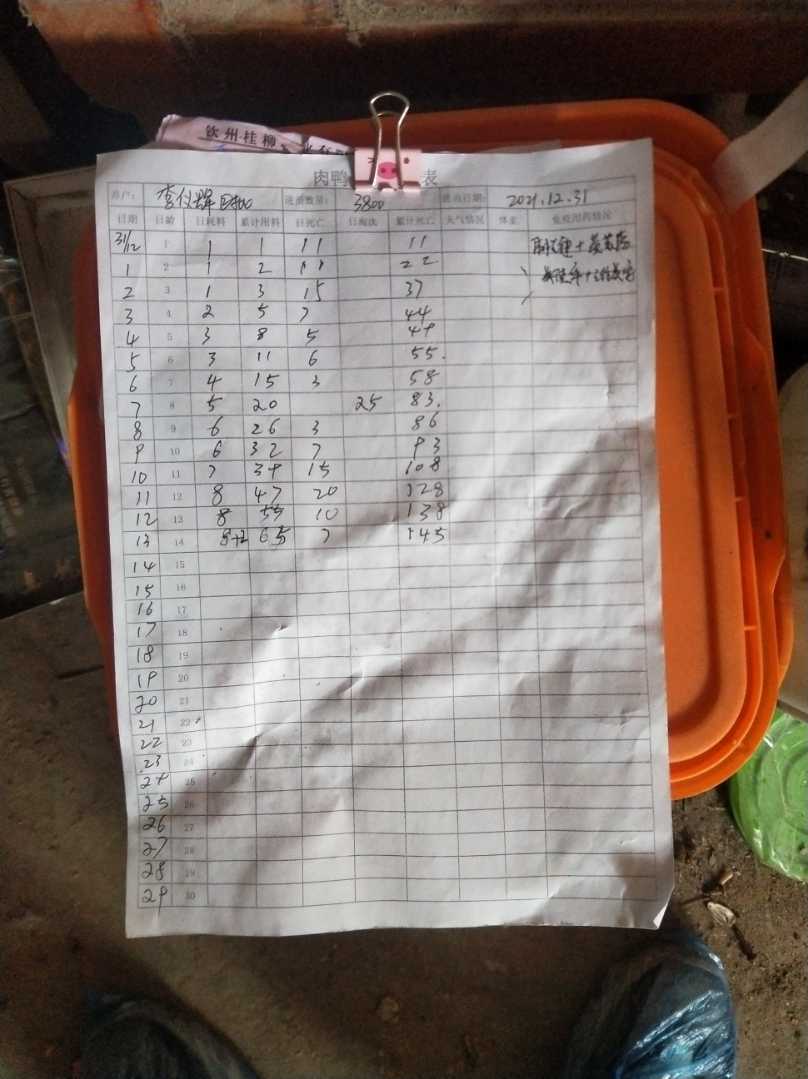 钦州·桂柳
肉鸭 表
养户： 进苗数量： 3800 进苗日期： 2021.12.31
日期 日龄 日耗料 累计用料 日死亡 日淘汰 累计死亡 天气情况 体重 免疫用药情况
31/12 1 1 1 11 11
1 2 1 2 11 22
2 3 1 3 15 37
3 4 2 5 7 44
4 5 3 8 5 49
5 6 3 11 6 55.
6 7 4 15 3 58
7 8 5 20 25 83.
8 9 6 26 3 86
9 10 6 32 7 93
10 11 7 39 15 108
11 12 8 47 20 128
12 13 8 55 10 138
13 14 8+2 65 7 145
14 15
15 16
16 17
17 18
18 19
19 20
20 21
21 22
22 23
23 24
24 25
25 26
26 27
27 28
28 29
29 30